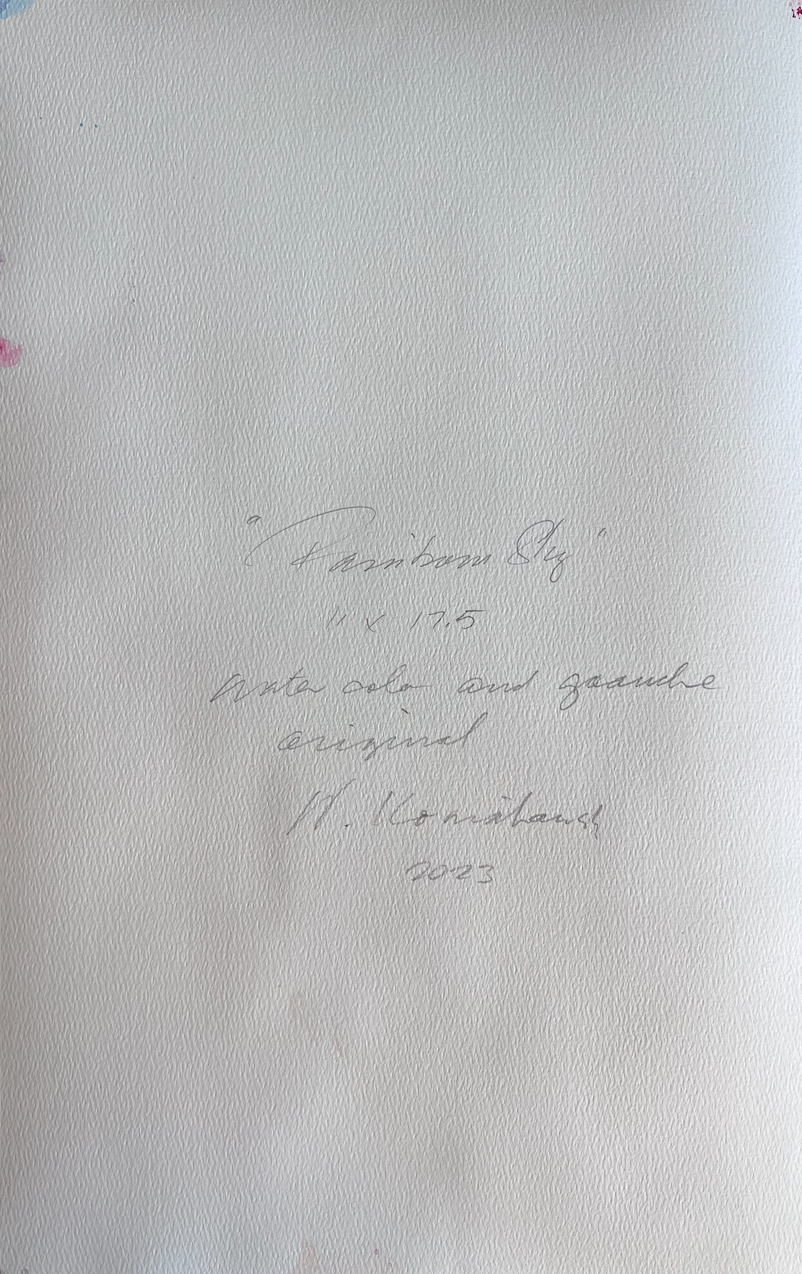 "Rainbow Sky"
11 x 17.5
water color and gouache
original
2023